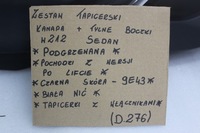 ZESTAW TAPICERSKI
KANAPA + TYLNE BOCZKI
W212 SEDAN
* PODGRZEWANA *
* POCHODZI Z WERSJI
PO LIFCIE *
* CZARNA SKÓRA - 9E43 *
* BIAŁA NIĆ *
* TAPICERKI Z WŁĄCZNIKAMI *
(D.276)